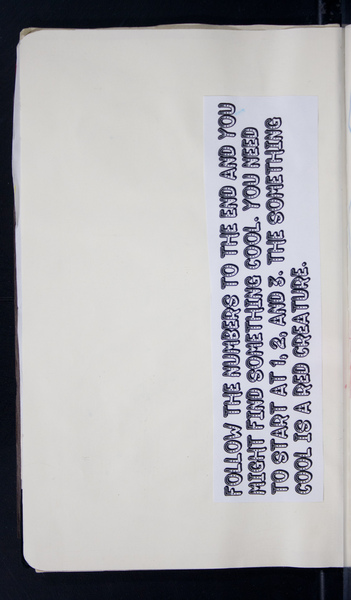 FOLLOW THE NUMBERS TO THE END AND YOU
MIGHT FIND SOMETHING COOL. YOU NEED
TO START AT 1, 2, AND 3. THE SOMETHING
COOL IS A RED CREATURE.